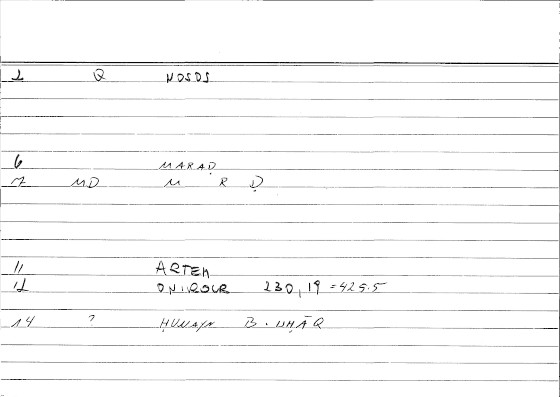 1 Q NOSOS
6 MARAḌ
7 MD M R Ḍ
11 ARTEM
12 ONIROCR 230,19 = 425.5
14 ? ḤUNAYN B. ISḤĀQ